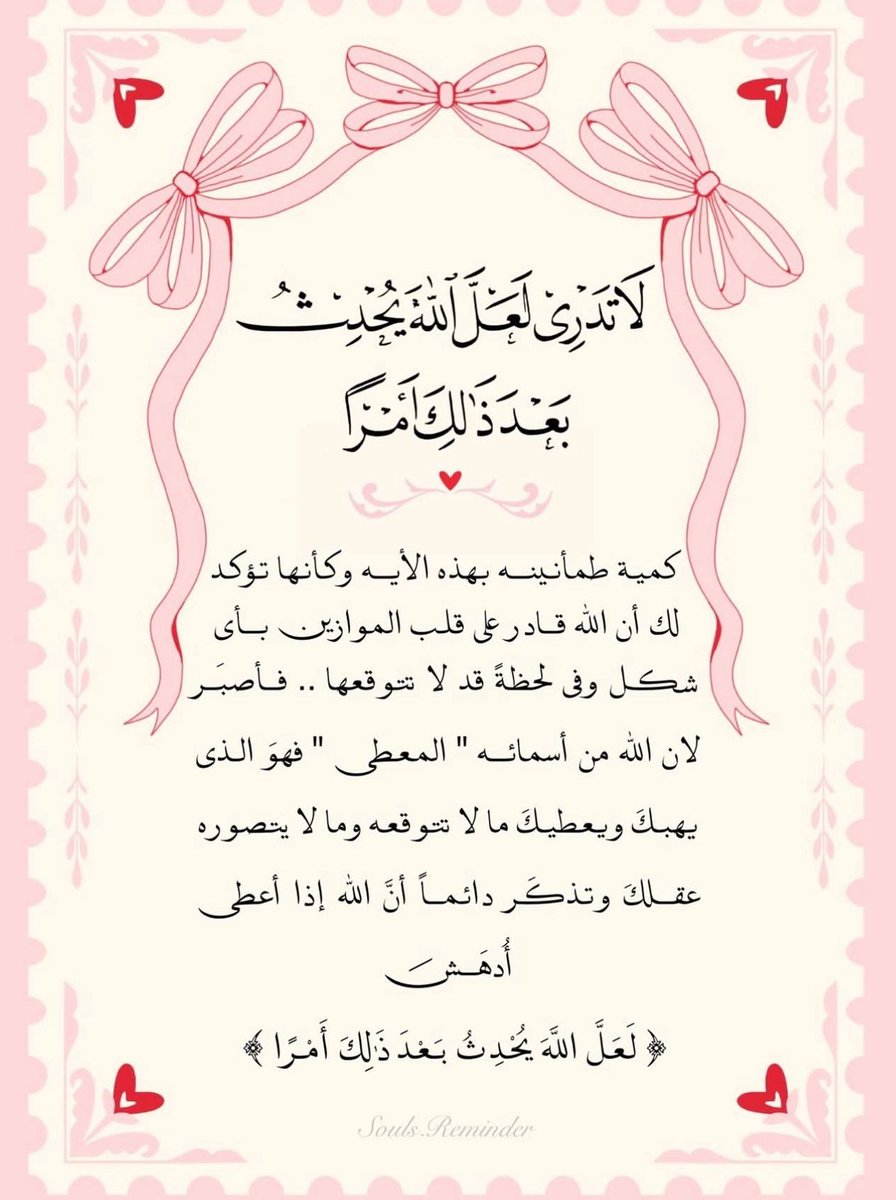 لَا تَدْرِى لَعَلَّ ٱللَّهَ يُحْدِثُ
بَعْدَ ذَٰلِكَ أَمْرًا
كمية طمأنينـه بهذه الأيـه وكأنها تؤكد
لك أن الله قـادر على قلب الموازين بـأى
شكـل وفى لحظةً قد لا تتوقعها .. فـأصبَـر
لان الله من أسمائـه " المعطى " فهوَ الـذى
يهبـكَ ويـعطيـكَ ما لا تتوقعه وما لا يتصوره
عقـلكَ وتـذكَـر دائـمـاً أنَّ الله إذا أعطى
أُدهَـش
﴿ لَعَلَّ اللَّهَ يُحْدِثُ بَعْدَ ذَٰلِكَ أَمْرًا ﴾
Souls.Reminder